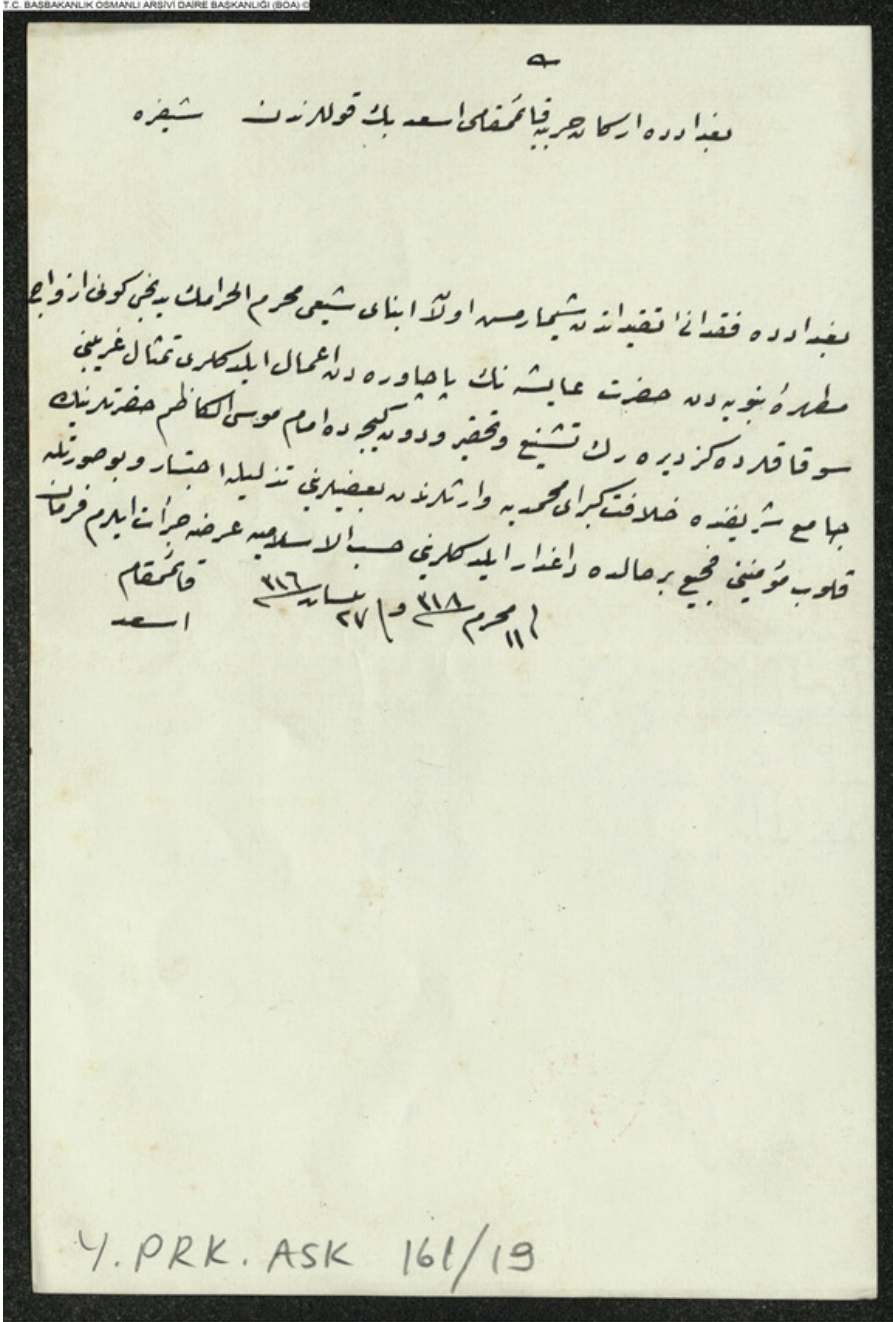 T.C. BAŞBAKANLIK OSMANLI ARŞİVİ DAİRE BAŞKANLIĞI (BOA) ©
بغدادده اركان حربيه قائمقامى اسعد بك قوللرندن شيفره
بغدادده فقدانى شيمارمش اولان ابناى شيعى محرم الحرامك يدنجى كونى ازواج
مطهرۀ نبويه دن حضرت عايشه نك پاچاوره دن اعمال ايلدكلرى تمثال غريبنى
سوقاقلرده كزديره رك تشنيع وتحقير و دون كيجه ده امام موسى الكاظم حضرتلرينك
جامع شريفنده خلافت كبراى محمديه وارثلرندن بعضيلرينى تذليله اجتسار وبوصورتله
قلوب مؤمنينى فجيع بر حالده داغدار ايلدكلرينى حسب الاسلاميه عرضه جرأت ايلرم فرمان
فى ١١ محرم ٣١٨ و فى ٢٧ نيسان ٣١٦ قائمقام
اسعد
Y. PRK. ASK 161/19